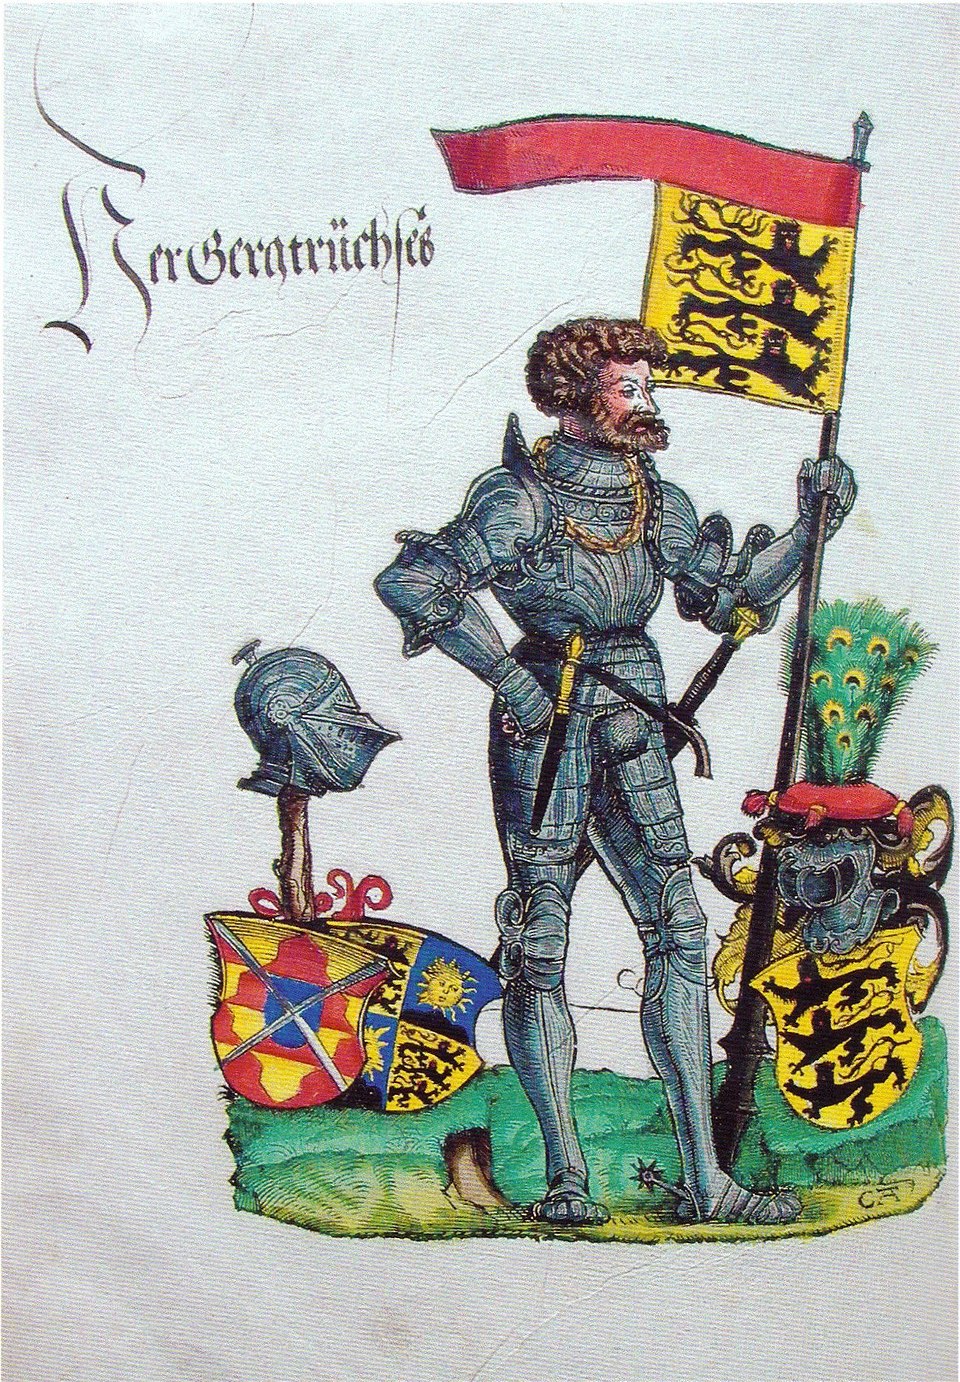 Her Gerg trüchſes
CA